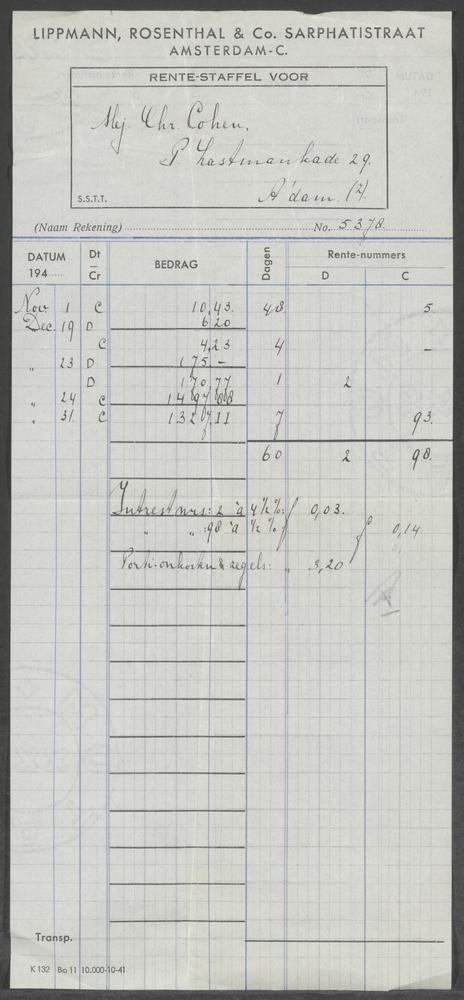 LIPPMANN, ROSENTHAL & Co. SARPHATISTRAAT
AMSTERDAM-C.
RENTE-STAFFEL VOOR
Mej. Chr. Cohen,
P. Lastmankade 29.
A'dam. (Z).
S.S.T.T.
(Naam Rekening) No. 5378.
DATUM 194 Dt — Cr BEDRAG Dagen Rente-nummers D C
Nov 1 C 10,43. 48 5.
Dec. 19 D 6 20
C 4,23 4 –
" 23 D 175 –
D 170,77 1 2
" 24 C 1497 88
" 31. C 1327,11 7 93.
60 2 98.
Intrest nrs: 2 à 4½%: f 0,03.
" " : 98 à ½%: f f 0,14
Porti-onkosten & zegels: " 3,20
Transp.
K 132 Bo 11 10.000-10-41